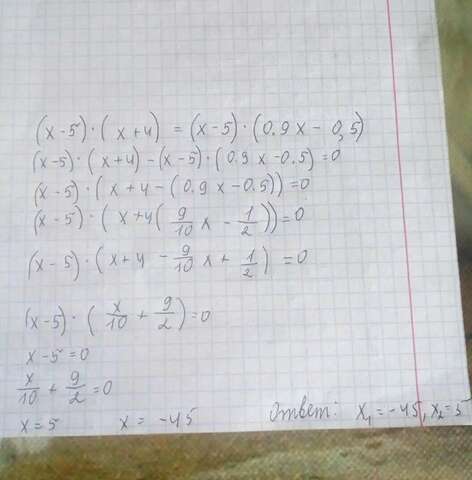 (x-5)·(x+4) = (x-5)·(0.9x - 0,5)
(x-5)·(x+4)-(x-5)·(0.9x-0.5)=0
(x-5)·(x+4-(0.9x-0.5))=0
(x-5)·(x+4(9/10x - 1/2))=0
(x-5)·(x+4-9/10x+1/2)=0
(x-5)·(x/10+9/2)=0
x-5=0
x/10+9/2=0
x=5 x=-45 Ответ: x₁=-45, x₂=5